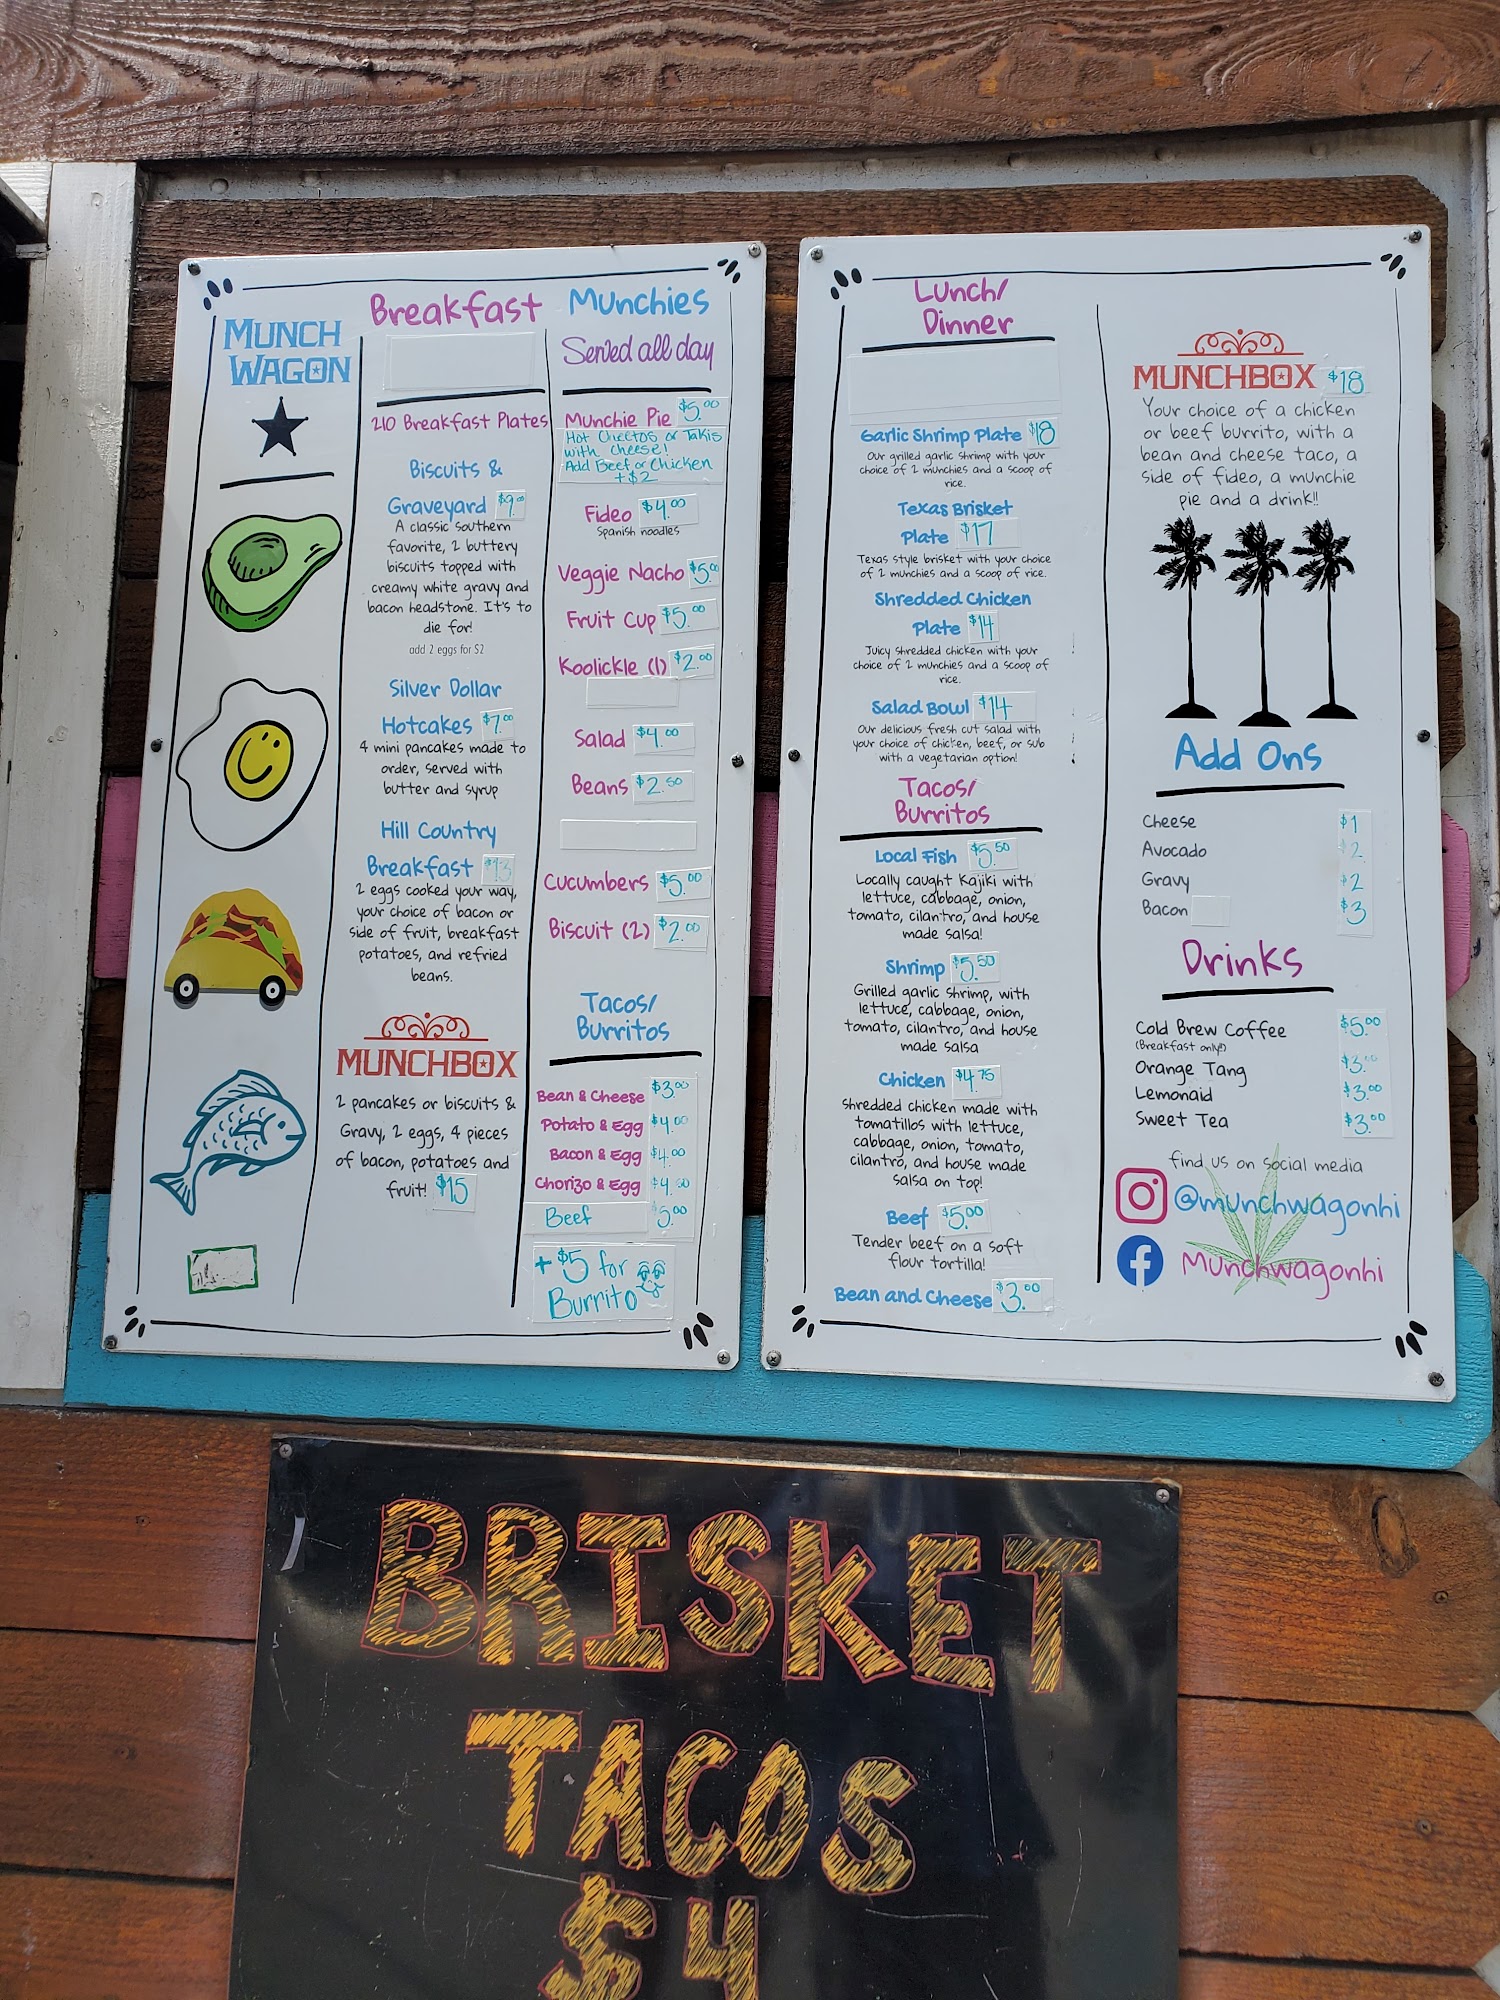 MUNCH
WAGON
Breakfast
210 Breakfast Plates
Biscuits &
Graveyard $9.00
A classic southern
favorite, 2 buttery
biscuits topped with
creamy white gravy and
bacon headstone. It's to
die for!
add 2 eggs for $2
Silver Dollar
Hotcakes $7.00
4 mini pancakes made to
order, served with
butter and syrup
Hill Country
Breakfast $13
2 eggs cooked your way,
your choice of bacon or
side of fruit, breakfast
potatoes, and refried
beans.
MUNCHBOX
2 pancakes or biscuits &
Gravy, 2 eggs, 4 pieces
of bacon, potatoes and
fruit! $15
Munchies
Served all day
Munchie Pie $5.00
Hot Cheetos or Takis
with cheese!
Add Beef or Chicken
+$2
Fideo $4.00
Spanish noodles
Veggie Nacho $5.00
Fruit Cup $5.00
Koolickle (1) $2.00
Salad $4.00
Beans $2.50
Cucumbers $5.00
Biscuit (2) $2.00
Tacos/
Burritos
Bean & Cheese $3.00
Potato & Egg $4.00
Bacon & Egg $4.00
Chorizo & Egg
Beef 5.00
+ $5 for
Burrito
Lunch/
Dinner
Garlic Shrimp Plate $18
Our grilled garlic shrimp with your
choice of 2 munchies and a scoop of
rice.
Texas Brisket
Plate $17
Texas style brisket with your choice
of 2 munchies and a scoop of rice.
Shredded Chicken
Plate $14
Juicy shredded chicken with your
choice of 2 munchies and a scoop of
rice.
Salad Bowl $14
Our delicious fresh cut salad with
your choice of chicken, beef, or sub
with a vegetarian option!
Tacos/
Burritos
Local Fish $5.50
Locally caught Kajiki with
lettuce, cabbage, onion,
tomato, cilantro, and house
made salsa!
Shrimp $5.50
Grilled garlic shrimp, with
lettuce, cabbage, onion,
tomato, cilantro, and house
made salsa
Chicken $4.75
Shredded chicken made with
tomatillos with lettuce,
cabbage, onion, tomato,
cilantro, and house made
salsa on top!
Beef $5.00
Tender beef on a soft
flour tortilla!
Bean and Cheese $3.00
MUNCHBOX $18
Your choice of a chicken
or beef burrito, with a
bean and cheese taco, a
side of fideo, a munchie
pie and a drink!!
Add Ons
Cheese $1
Avocado 2
Gravy $2
Bacon $3
Drinks
Cold Brew Coffee $5.00
(Breakfast only!)
Orange Tang $3.00
Lemonaid $3.00
Sweet Tea $3.00
find us on social media
@munchwagonhi
Munchwagonhi
BRISKET
TACOS
$4